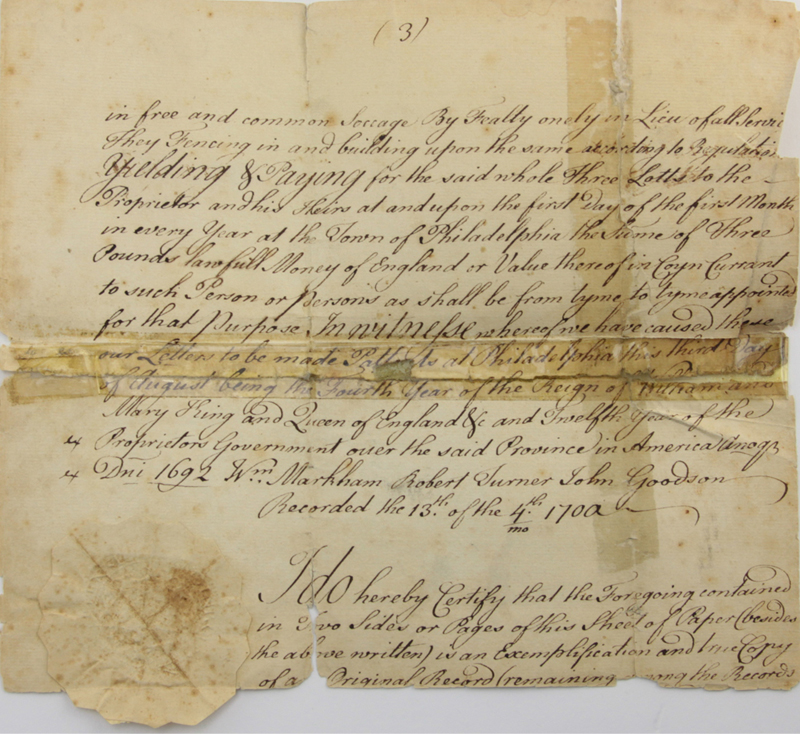 (3)
in free and common Soccage By Fealty onely in Lieu of all Servic
They Fencing in and building upon the same according to Regulation
Yielding & Paying for the said whole Three Lotts to the
Proprietor and his Heirs at and upon the first Day of the first Month
in every Year at the Town of Philadelphia the Sume of Three
Pounds lawfull Money of England or Value thereof in Coyn Currant
to such Person or persons as shall be from tyme to tyme appointed
for that purpose In witnesse whereof we have caused these
our Letters to be made Pattents at Philadelphia this third Day
of August being the Fourth Year of the Reign of William and
Mary King and Queen of England &c and Twelfth Year of the
Proprietors Government over the said Province in America Anoq
Dni 1692 Wm. Markham Robert Turner John Goodson
Recorded the 13th. of the 4th. mo 1700
I do hereby Certify that the Foregoing contained
in Two Sides or Pages of this Sheet of Paper (besides
the above written) is an Exemplification and true Copy
of a Original Record (remaining among the Records